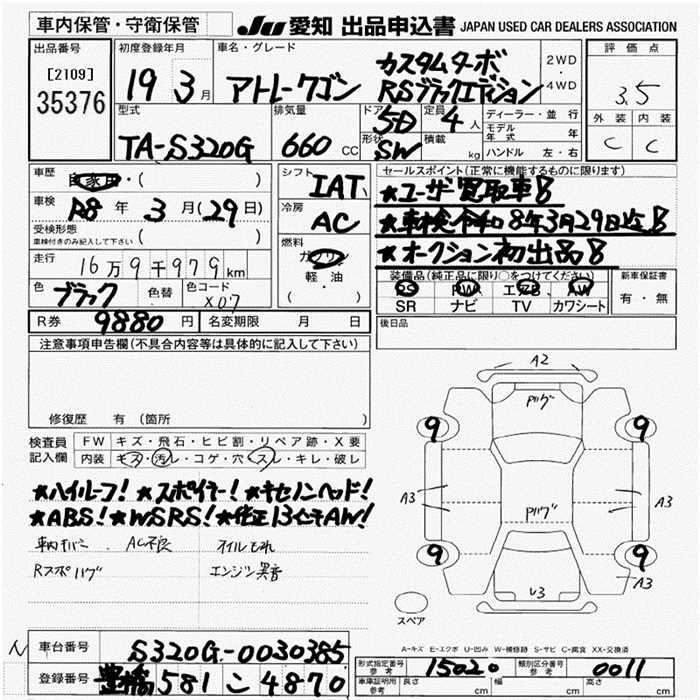 車内保管・守衛保管 JU 愛知 出品申込書 JAPAN USED CAR DEALERS ASSOCIATION
出品番号 初度登録年月 車名・グレード 評価点
[2109] 35376
19 3月 アトレーワゴン カスタムターボ RSブラックエディション 2WD・4WD 3.5
型式 排気量 ドア 形状 定員 積載 ディーラー・並行 外装 内装
TA-S320G 660 CC 5D SW 4人 kg モデル年式 年 C C
ハンドル 左・右
車歴 自家用・( ) シフト IAT セールスポイント(正常に機能するものに限ります)
車検 R8年 3月(29日) 冷房 AC ★ユーザー買取車!!
受検形態 車検付きのみ記入して下さい ( ) ★車検令和8年3月29日迄!!
走行 16万9千979km 燃料 ガソリン 軽・油 (・) ★オークション初出品!!
色 ブラック 色替 色コード X07 装備品(純正品に限り○をつけてください) 新車保証書
PS PW エアB AW 有・無
SR ナビ TV カワシート
R券 9880円 名変期限 月 日 後日品
注意事項申告欄(不具合内容等は具体的に記入して下さい)
修復歴 有 (箇所 )
検査員記入欄 FW キズ・飛石・ヒビ割・リペア跡・X要
内装 キズ・汚レ・コゲ・穴・スレ・キレ・破レ
★ハイルーフ!★スポイラー!★キセノンヘッド!
★ABS!★WSRS!★純正13インチAW!
車内キバミ AC不良 オイルもれ
Rスポハゲ エンジン異音
A2
Pハゲ
9 9
A3 A3
Pハゲ
9 9
A3
スペア
A-キズ E-エクボ U-凹み W-補修跡 S-サビ C-腐食 XX-交換済
車台番号 S320G-0030385
登録番号 豊橋 581 こ 4870
形式指定番号 参考 15020 類別区分番号 参考 0011
車庫証明用 参考 長さ cm 幅 cm 高さ cm